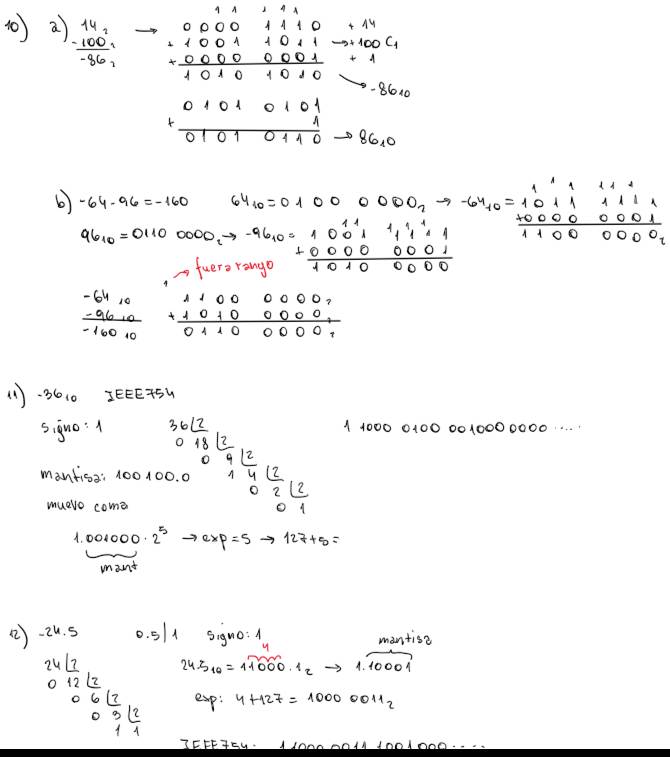 10) a) 14₂ → 0000 1110 + 14
-100₂ + 1001 1011 → +100 C1
-86₂ + 0000 0001 + 1
1010 1010 → -86₁₀
0101 0101
+ 1
0101 0110 → 86₁₀
b) -64-96=-160 64₁₀=0100 0000₂ → -64₁₀= 1011 1111
+0000 0001
1100 0000₂
96₁₀=0110 0000₂ → -96₁₀= 1001 1111
+ 0000 0001
1010 0000
1 → fuera rango
-64₁₀ 1100 0000₂
-96₁₀ + 1010 0000₂
-160₁₀ 0110 0000₂
11) -36₁₀ IEEE754
signo: 1 36|2 1 1000 0100 001000 0000 .....
0 18|2
0 9|2
mantisa: 100100.0 1 4|2
0 2|2
muevo coma 0 1
1.001000 · 2⁵ → exp=5 → 127+5=
mant
12) -24.5 0.5|1 signo: 1 mantisa
4
24|2 24.5₁₀ = 11000.1₂ → 1.10001
0 12|2
0 6|2 exp: 4+127 = 1000 0011₂
0 3|2
1 1
IEEE754: 1 1000 0011 1001000.....